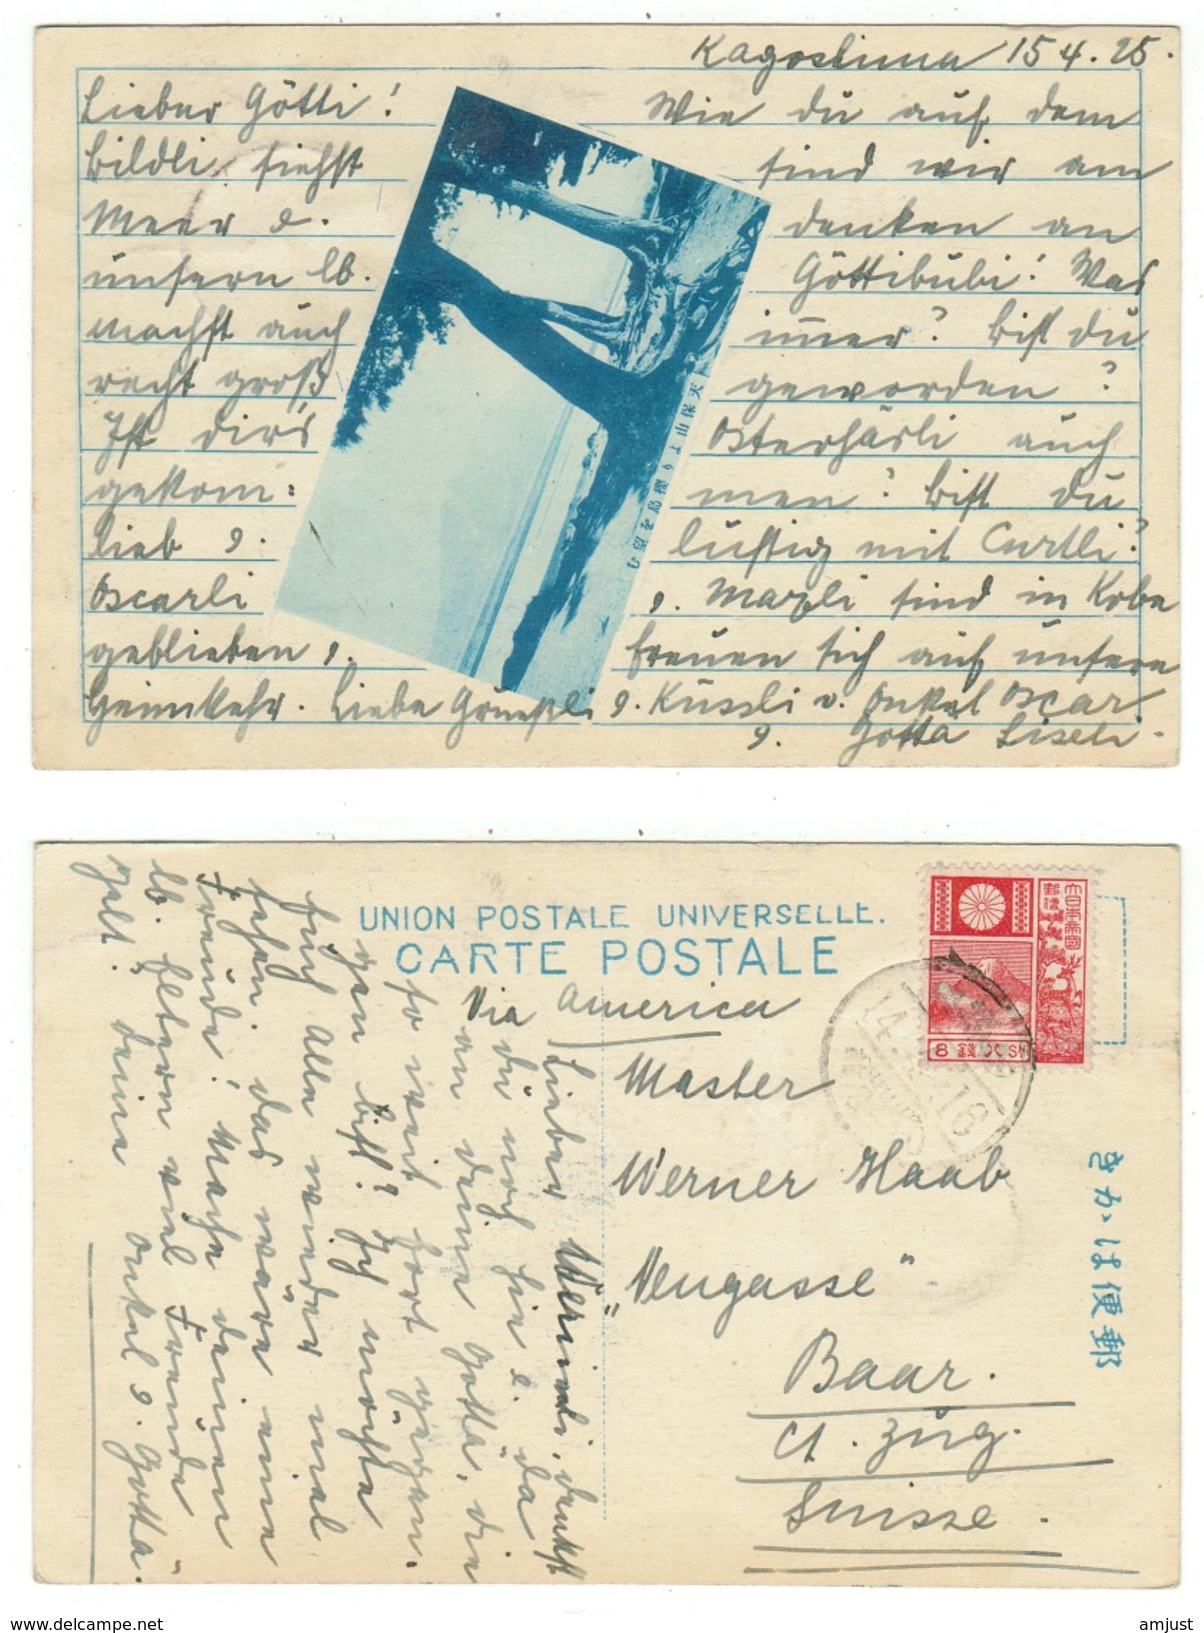 Kagoshima 15 4. 25.
Lieber Götti! Wie du auf dem
Bildli siehst sind wir am
Meer u. denken an
unsern lb. Göttibubi! Was
machst auch immer? Bist du
recht groß geworden?
Ist dir's Osterhäsli auch
gekom= men? Bist du
lieb u. luftig mit Curtli?
Oscarli u. Mazli sind in Kobe
geblieben u. freuen sich auf unsere
Heimkehr. Liebe Grüessli u. Küssli v. Onkel Oscar
u. Gotta Liseli.
天保山より櫻島を望む
UNION POSTALE UNIVERSELLE.
CARTE POSTALE
Via America
Master
Werner Haab
"Neugasse"
Baar.
Ct. Zug.
Suisse.
きかは便郵
大日本帝國
郵便
8 錢 SN
Lieber Werineli, denkst
du noch hie u. da
an deine Gotta, die
so weit fort gegan-
gen ist? Ich möchte
Euch alle wieder mal
sehen. das wäre eine
Freude! Mache deinen
lb. Eltern viel Freude
gelt. deine Onkel u. Gotta.
www.delcampe.net
amjust